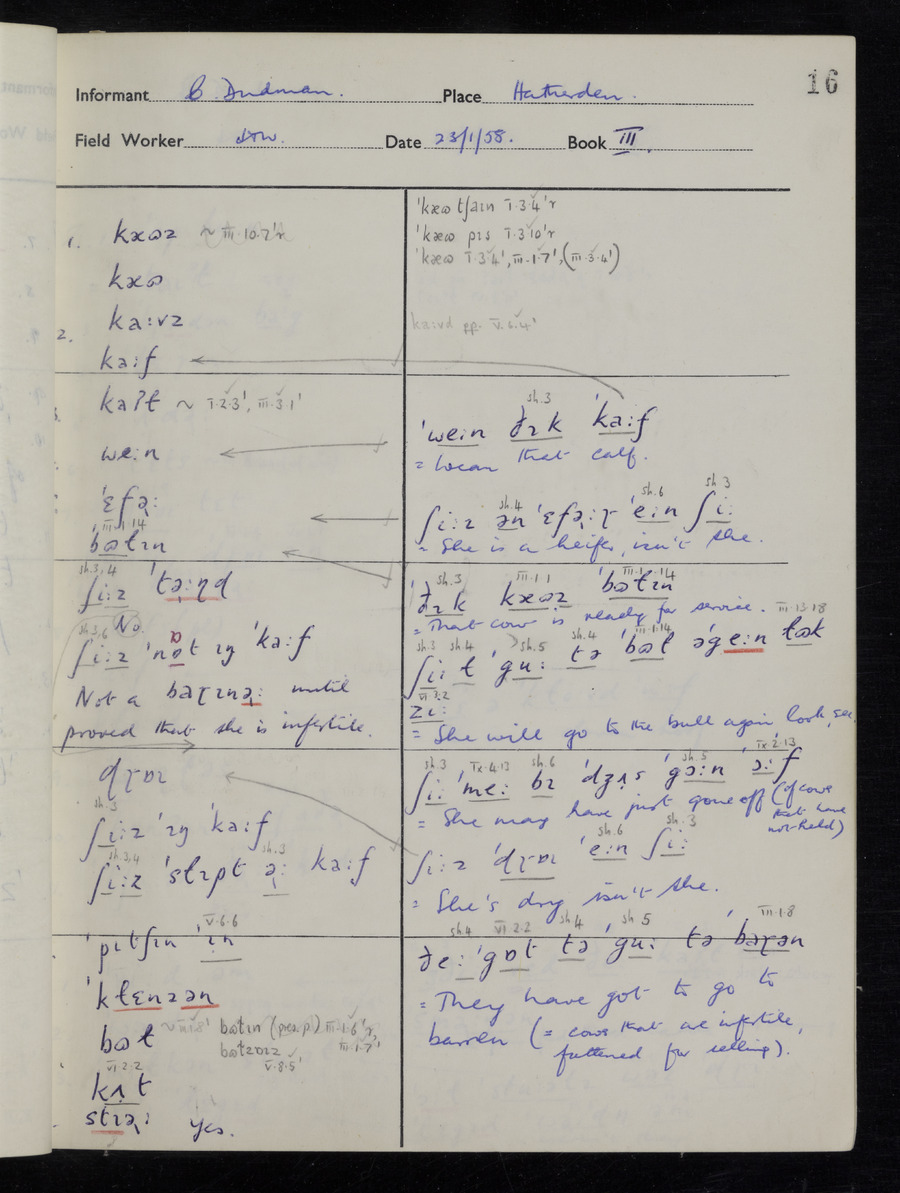 16
Informant B Dudman. Place Hatherden.
Field Worker Date 23/1/58. Book III.
1. kæʊz ~ III.10.7'r
kæʊ
2. ka:vz
ka:f
kaʔt ~ I.2.3', III.3.1'
we:n
'ɛfə̣:
III.1.14
bʊtɪn
sh.3,4
ʃi:z 'tə̣:ɳɖ
sh.3,6 No.
ʃi:z 'nɒt ɪŋ 'ka:f
Not a until
proved that she is infertile.
dɽɒɪ
sh.3
ʃi:z 'ɪŋ 'ka:f
sh.3,4 sh.3
ʃi:z 'stɪpt ə̣: ka:f
V.6.6
'pɪtʃɪn 'ɪn
'klɛnzən
bʊt ~ III.1.8' bʊtɪn (pres.p.) III.1.6'r,
III.1.7'
V.8.5'
VI.2.2
kʌ̣t
stɪə̣: yes.
'kæʊ tʃaɪn I.3.4'r
'kæʊ pɪs I.3.10'r
'kæʊ I.3.4', III.1.7', (III.3.4')
ka:vd pp. V.6.4'
sh.3
'we:n ðɪk 'ka:f
= Wean that calf.
sh.4 sh.6 sh 3
ʃi:z ən 'ɛfə̣:ɽ 'e:n ʃi:
= She is a heifer, isn't she.
sh.3 III.1.1 III.1.14
'ðɪk kæʊz 'bʊtɪn
= That cow is ready for service. III.13.18
sh.3 sh4 sh.5 sh.4 III.1.14
ʃi: t 'gu: tə 'bʊt əge:n tʊk
VI.3.2
zi:
= She will go to the bull again look, see.
sh.3 IX.4.13 sh.6 sh.5 IX.2.13
ʃi: 'me: bɪ 'dʒʌs 'gɔ:n 'ɔ:f
= She may have just gone off (of cows
that have
not-held)
sh.6 sh.3
ʃi:z 'dɽɒɪ 'e:n ʃi:
= She's dry isn't she.
sh.4 VI 2.2 sh4 sh 5 III.1.8
ðe: 'gɒt tə 'gu: tə 'bæɽən
= They have got to go to
barren (= cows that are infertile,
fattened for selling).